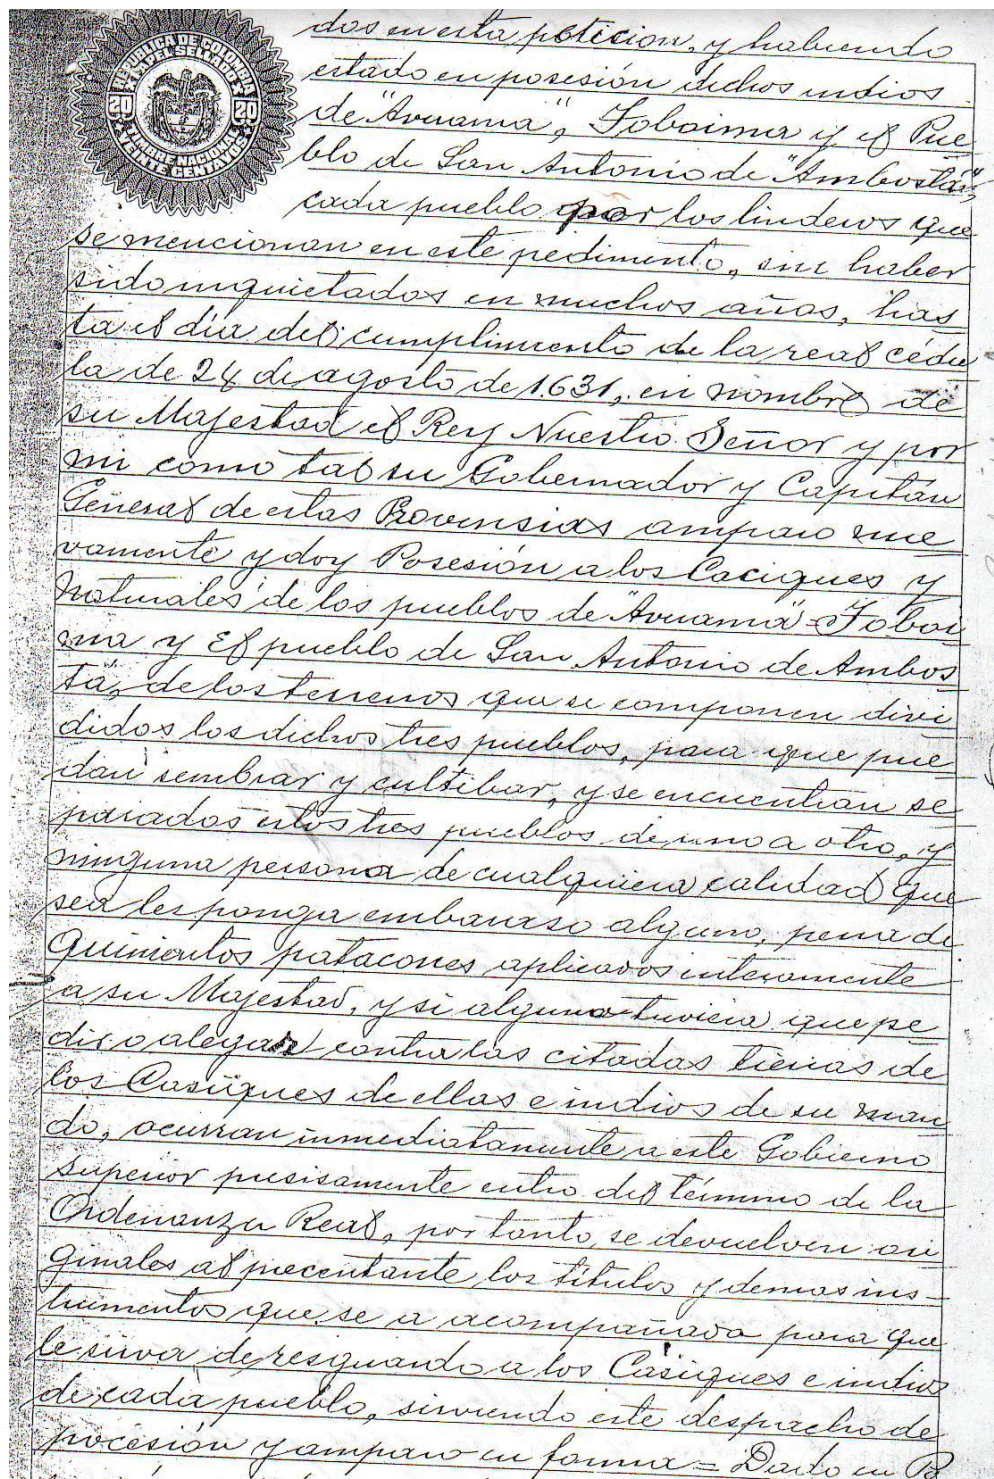 REPUBLICA DE COLOMBIA
PAPEL SELLADO
20 20
TIMBRE NACIONAL
VEINTE CENTAVOS
dos en esta peticion, y habiendo
estado en posesión dichos indios
de "Avuama", Joboima y el Pue
blo de San Antonio de "Ambostá",
cada pueblo por los linderos que
se mencionan en este pedimento, sin haber
sido inquietados en muchos años, has
ta el día del cumplimento de la real cédu
la de 24 de agosto de 1.631, en nombre de
su Majestad el Rey Nuestro Señor y por
mi como tal su Gobernador y Capitán
General de estas Provensias amparo nue
vamente y doy Posesión a los Caciques y
naturales de los pueblos de "Avuama" Joboi
ma y El pueblo de San Antonio de Ambos
tá, de los terrenos que se componen divi
didos los dichos tres pueblos, para que pue
dan sembrar y cultibar, y se encuentran se
parados estos tres pueblos de uno a otro, y
ninguna persona de cualquiera calidad que
sea les ponga embaraso alguno, pena de
quinientos patacones aplicados enteramente
a su Majestad, y si alguno tuviera que pe
dir o alegar contra las citadas tierras de
los Casiques de ellas e indios de su man
do, ocurran inmediatamente a este Gobierno
superior presisamente entro del término de la
Ordenanza Real, por tanto, se devuelven ori
ginales al precentante los títulos y demas ins-
trumentos que se a acompañado para que
le sirva de resguardo a los Casiques e indios
de cada pueblo, sirviendo este despacho de
pocesión y amparo en forma = Dado en